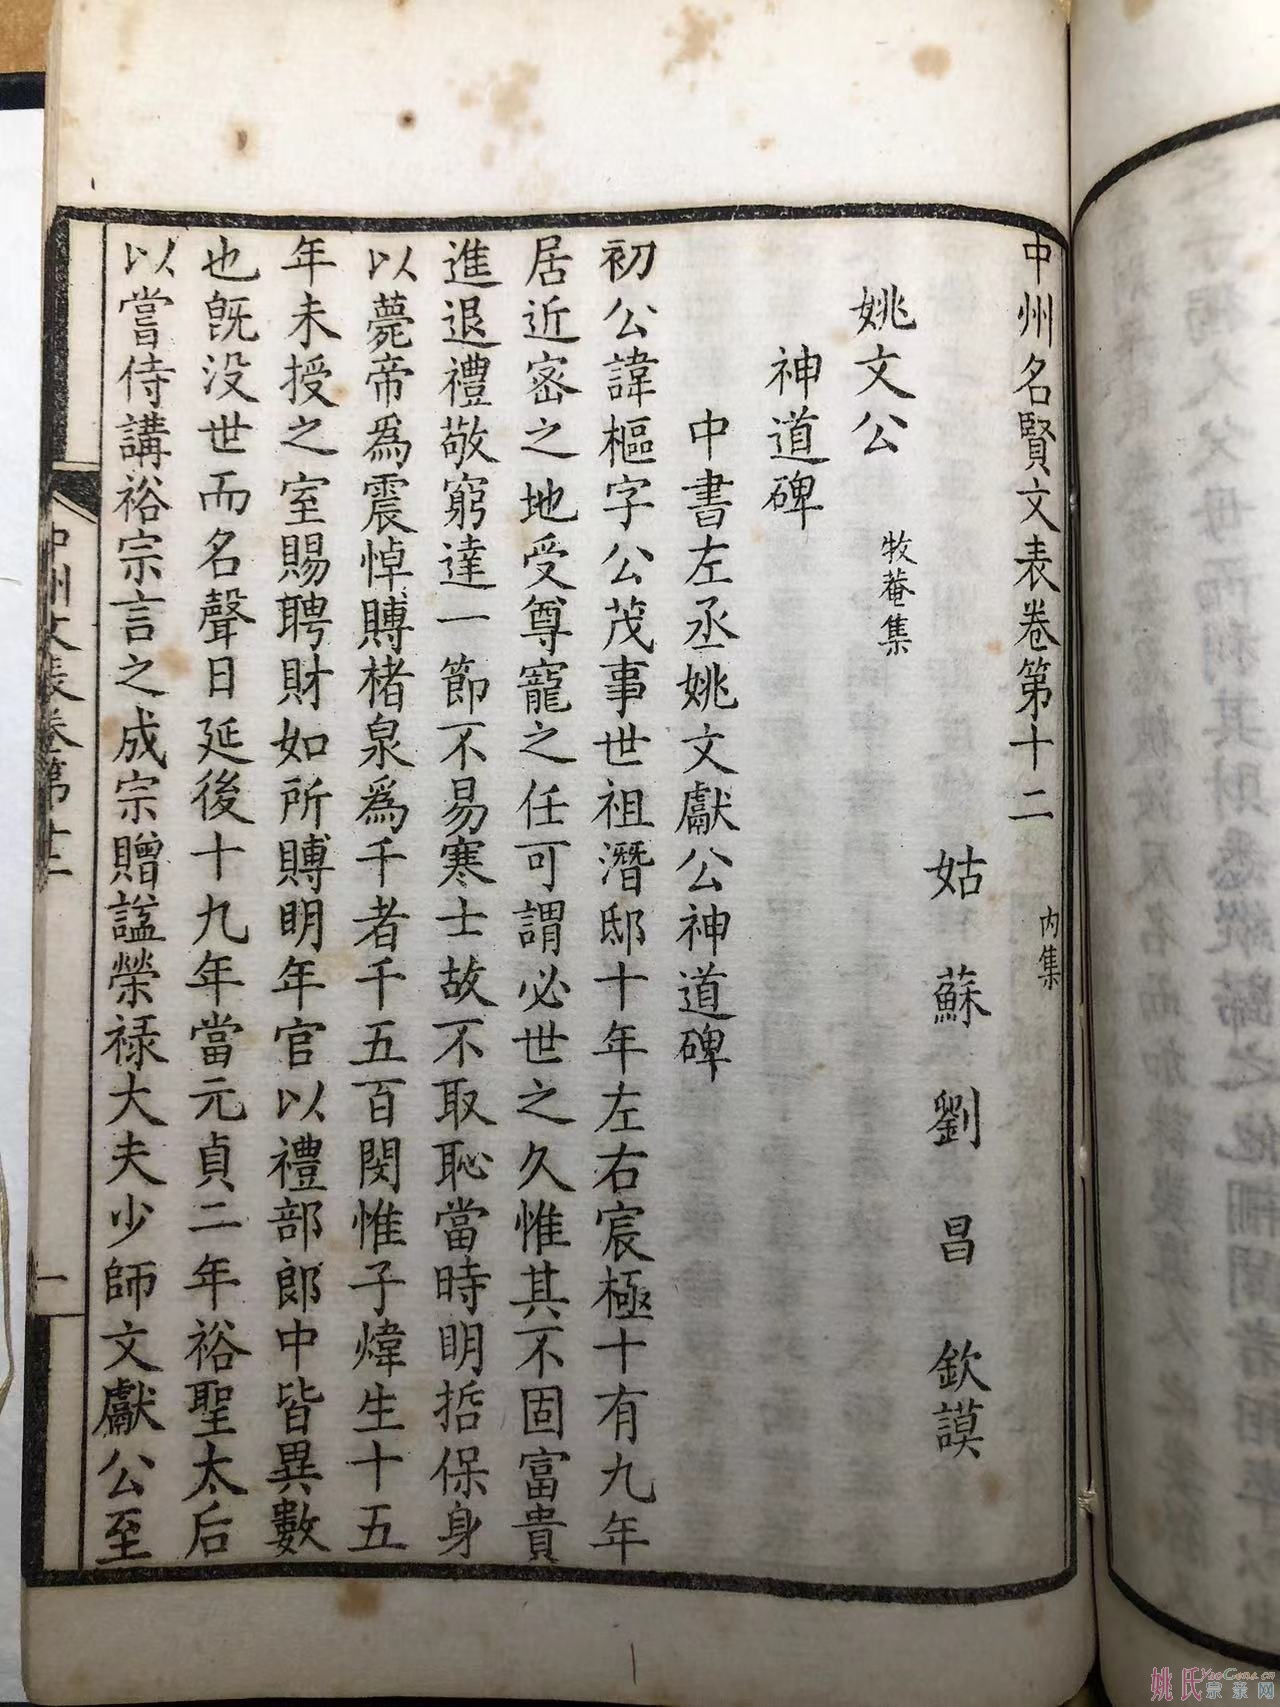 中州名賢文表卷第十二 内集
姑蘇劉昌欽謨
姚文公 牧菴集
神道碑
中書左丞姚文獻公神道碑
初公諱樞字公茂事世祖潛邸十年左右宸極十有九年
居近密之地受尊寵之任可謂必世之久惟其不固富貴
進退禮敬窮達一節不易寒士故不取恥當時明哲保身
以薨帝爲震悼賻楮泉爲千者千五百閔惟子煒生十五
年未授之室賜聘財如所賻明年官以禮部郎中皆異數
也旣没世而名聲日延後十九年當元貞二年裕聖太后
以嘗侍講裕宗言之成宗贈諡榮禄大夫少師文獻公至
中州文表卷第十二
一
姚氏宗亲网
YaoGens.cn